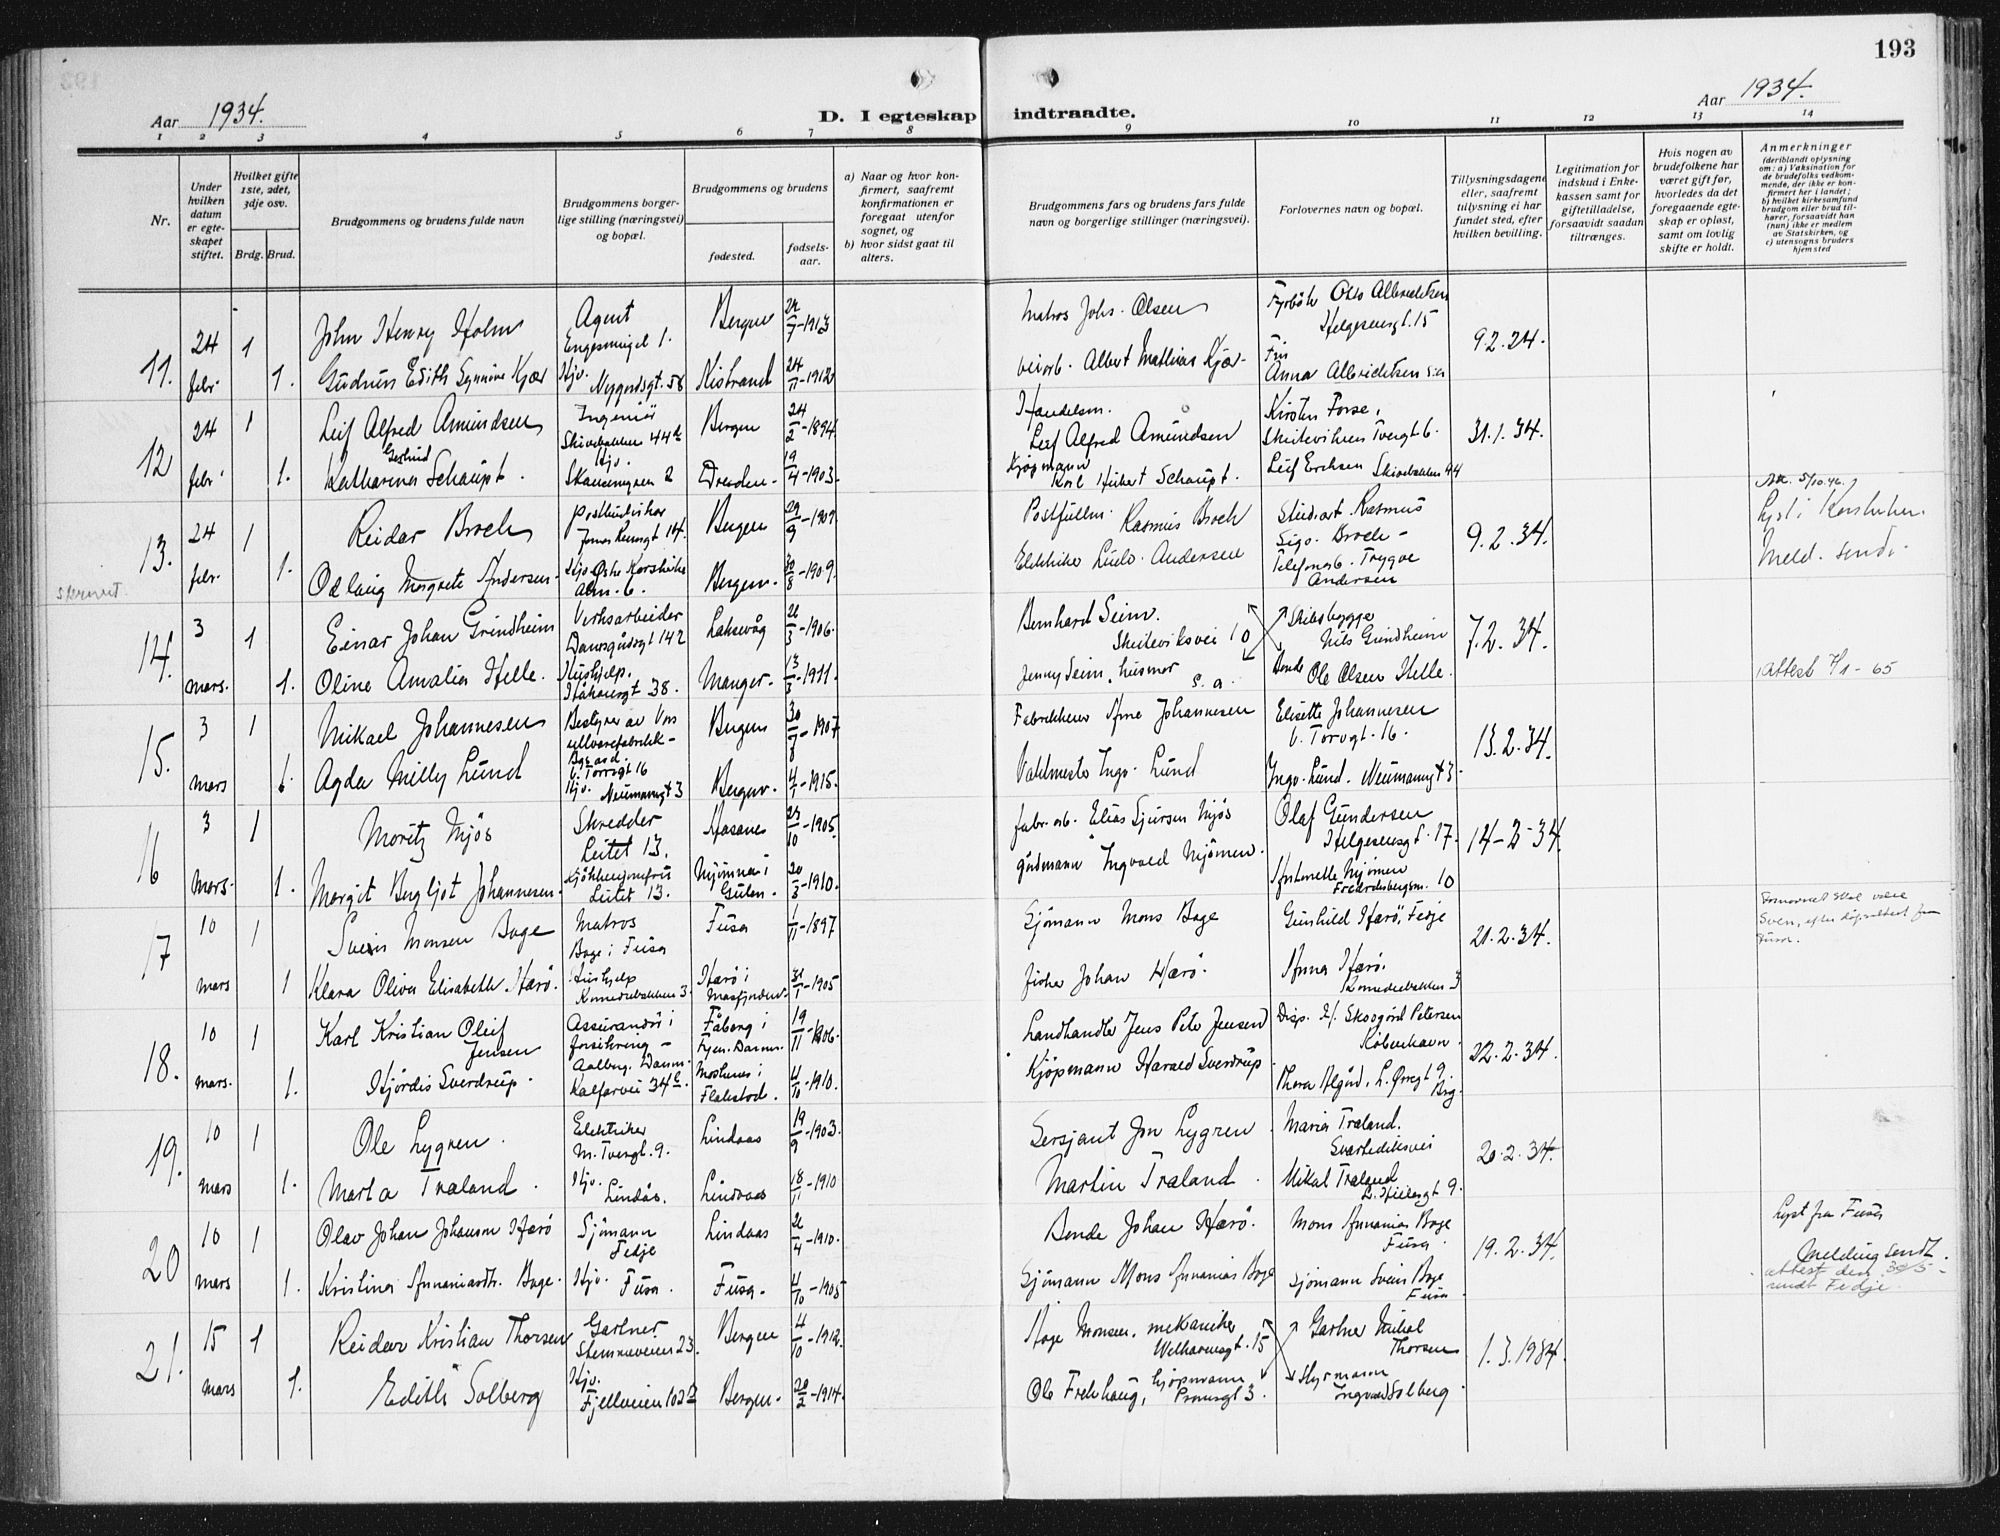 193
Aar 1934.
D. I egteskap indtraadte.
Aar 1934.
1 2 3 4 5 6 7 8 9 10 11 12 13 14
Nr.
Under hvilken datum er egteskapet stiftet.
Hvilket gifte 1ste, 2det, 3dje osv.
Brdg. Brud.
Brudgommens og brudens fulde navn
Brudgommens borgerlige stilling (næringsvei) og bopæl.
Brudgommens og brudens
fødested.
fødselsaar.
a) Naar og hvor konfirmert, saafremt konfirmationen er foregaat utenfor sognet, og
b) hvor sidst gaat til alters.
Brudgommens fars og brudens fars fulde navn og borgerlige stillinger (næringsvei).
Forlovernes navn og bopæl.
Tillysningsdagene eller, saafremt tillysning ei har fundet sted, efter hvilken bevilling.
Legitimation for indskud i Enkekassen samt for giftetilladelse, forsaavidt saadan tiltrænges.
Hvis nogen av brudefolkene har været gift før, hvorledes da det foregaaende egteskap er opløst, samt om lovlig skifte er holdt.
Anmerkninger
(deriblandt oplysning om: a) Vaksination for de brudefolks vedkommende, der ikke er konfirmert her i landet; b) hvilket kirkesamfund brudgom eller brud tilhører, forsaavidt han (hun) ikke er medlem av Statskirken, og c) utensogns bruders hjemsted
11. 24 febr. 1 John Henry Holm Agent Bergen 1913 Matros Johs. Olsen Fyrbøter Otto Albrechtsen Helgesensgt. 15
9.2.24.
1. Gudrun Edith Synnøve Kjær Hjv. Nygårdsgt. 58 Kistrand 24/11-1912 Albert Mathias Kjær Fru Anna Albrechtsen
12 24 febr 1 Leif Alfred Amundsen Ingeniør Skivebakken 44 Bergen 24/2-1894 Handelsm. Leif Alfred Amundsen Kirsten Forse, Skuteviken Tvergt 6.
31.1.34.
1. Katharina Gertrud Schaupt. Hjv. Skansemyren 2 Dresden- 19/4-1903. Kjøpmann Karl Hubert Schaupt. Leif Erichsen Skivebakken 44
13. 24 febr. 1 Reidar Broch Bergen 29/9-1907 Postfullm. Rasmus Broch Rasmus Sigv. Broch-
9.2.34.
5/10.46.
Meld. sendt.
1. Odlaug Margrete Andersen- Alm. 6. Bergen. 30/8-1909. Elektriker Ludv. Andersen Trygve Andersen
skrevet.
14. 3 mars. 1 Einar Johan Grindheim Verksarbeider Damsgårdsgt 142 Laksevåg 26/3-1906. Bernhard Seim. Skuteviksvei 10 Skibsbygge Nils Grindheim
7.2.34.
1. Oline Amalia Helle. Hushjelp. Håkonsgt 38. Manger- 13/3-1911 Jenny Seim, husmor s.a. Bonde Ole Olsen Helle.
Attest 7/1-65
15. 3 mars 1 Mikael Johannesen Bestyrer av Voss ullvarefabrikk- V. Torvgt 16 Bergen 30/7-1907 Arne Johannesen Elisette Johannesen V. Torvgt. 16.
13.2.34.
Agda Milly Lund Hjv. Neumannsgt 3 Bergen. 4/1-1915. Ingv. Lund Ingv. Lund. Neumannsgt 3.
16 3 Mars. 1 Moritz Mjøs Skredder Leitet 13. 1905. fabr.arb. Elias Sjursen Mjøs Olaf Gundersen Helgesensgt. 17.
14-2-34.
1. Margit Bergljot Johannesen. Leitet 13. Mjømna i Gulen. 20/3-1910. Ingvald Mjømen. Antonette Mjømen 10
17 10 mars 1 Svein Monsen Bage Matros Bage i Fusa Fusa 1/11-1897 Sjømann Mons Bage Gunhild Harø, Fedje
21.2.34.
Fornavnet skal være Sven, efter dåpsattest fra Fusa.
1 Klara Oliva Elisabeth Harø. Hushjelp Komediebakken 3 Harø i Masfjorden. 31/1-1905 fisker Johan Harø. Anna Harø. Komediebakken 3
18. 10 mars. 1 Karl Kristian Oluf Jensen Assurandør i forsikring- Aalborg, Danm. Fåborg i Fyen. Danm. 19/11-1906. Landhandler Jens Peter Jensen Disp. H. Skovgård Petersen København.
22.2.34.
1. Hjördis Sverdrup. Kalfarvei 34 Moskenes i Flakstad. 4/10-1910. Kjøpmann Harald Sverdrup Thora Algård, L. Øvregt 9. Brg.
19. 10 mars 1 Ole Lygren. Elektriker M. Tvergt. 9. Lindaas 19/9-1903. Sersjant Jon Lygren Maria Træland. Svartediksvei
20.2.34.
1. Marta Træland. Hjv. Lindås. Lindaas 18/11-1910 Martin Træland. Mikal Træland 9.
20 10 mars 1 Olav Johan Johanson Harø Sjömann Fedje Lindaas 1910. Bonde Johan Harø. Mons Ananias Bage Fusa.
19.2.34.
Lyst fra Fusa
Melding sendt.
attest den 30/5 sendt Fedje
1. Kristina Ananiasdtr. Bage. Hjv. Fusa. Fusa. 4/10-1905 Sjömann Mons Ananias Bage Sjömann Svein Bage Fusa
21. 15 mars 1 Reidar Kristian Thorsen Gartner Stemmeveien 23. Bergen 4/10-1912. Aage Monsen, mekaniker Welhavensgt. 15 Gartner Mikal Thorsen
1.3.1934.
1. Edith Solberg Hjv. Fjellveien 102 Bergen. 20/2-1914. Ole Frekhaug, kjøpmann 3. Styrmann Ingvald Solberg.